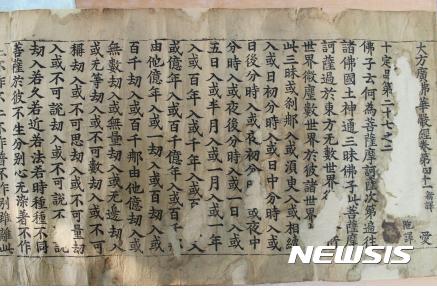 大方廣佛華嚴經卷第四十一 新譯 愛
十定品第二十七之二
佛子云何為菩薩摩訶薩次第遍往
諸佛國土神通三昧佛子此菩薩摩
訶薩過於東方無數世界
世界微塵數世界於彼諸世界
此三昧或剎那入或須臾入或相續
入或日初分時入或日中分時
日後分時入或夜初分 或夜中
分時入或夜後分時入或一日入或
五日入或半月入 一月入或一年
入或百年入或千年入
或億年入或百千億年入或百千
由他億年入或一劫入或百劫入或
百千劫入或百千那由他億劫入或
無數劫入或無量劫入或無邊劫入
或無等劫入或不可數劫入或不可
稱劫入或不可思劫入或不可量劫
入或不可說劫入或不可說不
劫入若久若近若法若時種種不同
菩薩於彼不生分別心無染著不作
二不作不二不作普不作別雖離此
NEWSIS